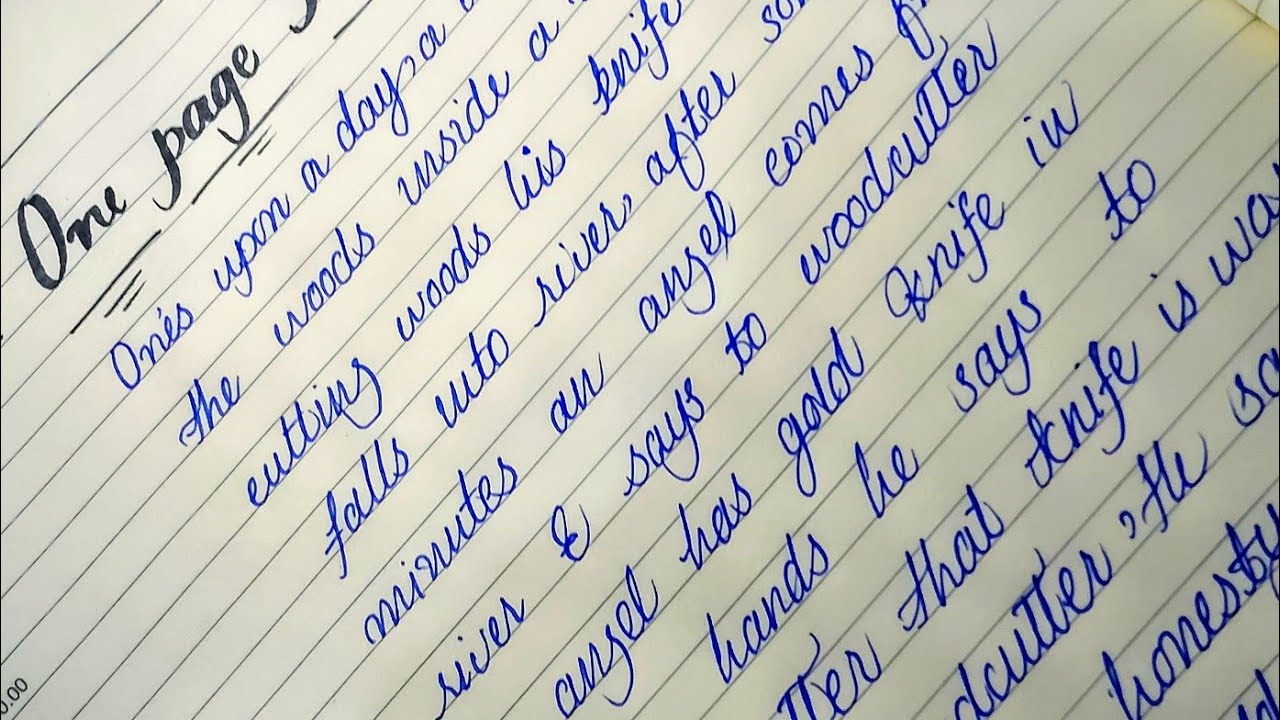 One page
One's upon a day, a
the woods inside a
cutting woods his knife
falls into river, after
minutes an angel comes
river & says to woodcutter
angel has gold knife in
hands he says to
tter that knife is
dcutter, the
honesty
0.00